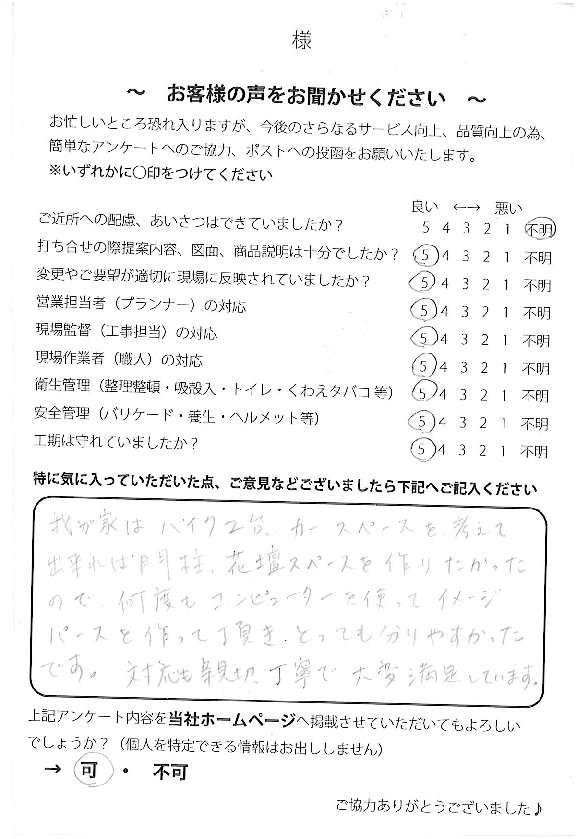 様
～ お客様の声をお聞かせください ～
お忙しいところ恐れ入りますが、今後のさらなるサービス向上、品質向上の為、
簡単なアンケートへのご協力、ポストへの投函をお願いいたします。
※いずれかに〇印をつけてください
良い ←→ 悪い
ご近所への配慮、あいさつはできていましたか？ 5 4 3 2 1 不明
打ち合せの際提案内容、図面、商品説明は十分でしたか？ 5 4 3 2 1 不明
変更やご要望が適切に現場に反映されていましたか？ 5 4 3 2 1 不明
営業担当者（プランナー）の対応 5 4 3 2 1 不明
現場監督（工事担当）の対応 5 4 3 2 1 不明
現場作業者（職人）の対応 5 4 3 2 1 不明
衛生管理（整理整頓・吸殻入・トイレ・くわえタバコ等） 5 4 3 2 1 不明
安全管理（バリケード・養生・ヘルメット等） 5 4 3 2 1 不明
工期は守れていましたか？ 5 4 3 2 1 不明
特に気に入っていただいた点、ご意見などございましたら下記へご記入ください
我が家はバイク2台、カースペースを考えて
出来れば門柱、花壇スペースを作りたかった
ので、何度もコンピューターを使ってイメージ
パースを作って頂き、とっても分りやすかった
です。対応も親切、丁寧で大変満足しています。
上記アンケート内容を当社ホームページへ掲載させていただいてもよろしい
でしょうか？（個人を特定できる情報はお出ししません）
→ 可 ・ 不可
ご協力ありがとうございました♪